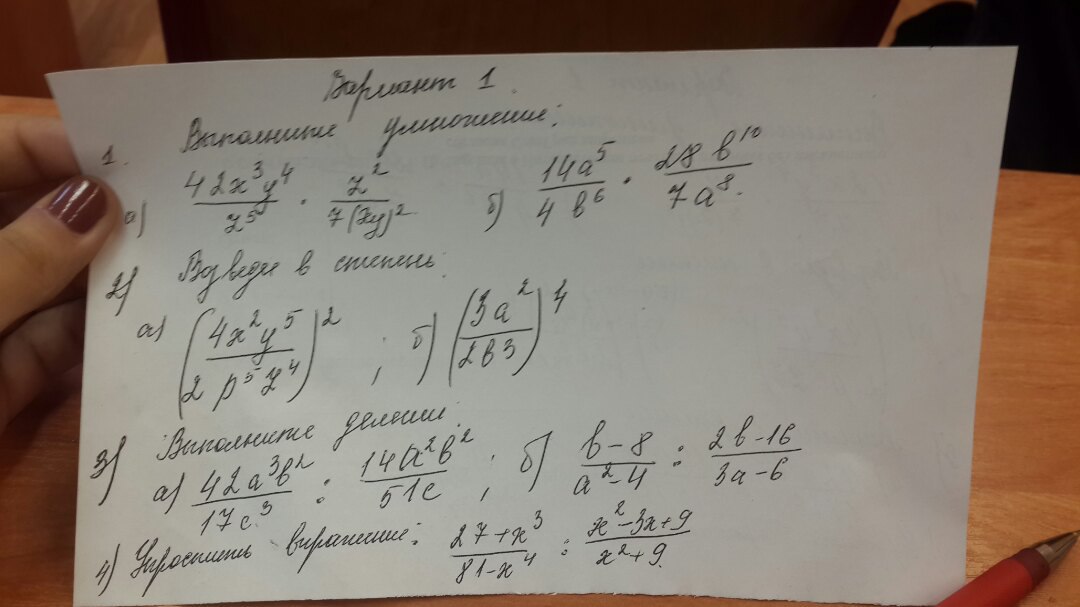 Вариант 1.
1. Выполните умножение:
а) 42x³y⁴/z⁵ · z²/7(xy)² б) 14a⁵/4b⁶ · 28b¹⁰/7a⁸.
2) Возведи в степень:
а) (4x²y⁵/2p⁵z⁴)² ; б) (3a²/2b3)⁴
3) Выполните деление:
а) 42a³b²/17c³ : 14a²b²/51c ; б) b-8/a²-4 : 2b-16/3a-6
4) Упростить выражение: 27+x³/81-x⁴ : x²-3x+9/x²+9.